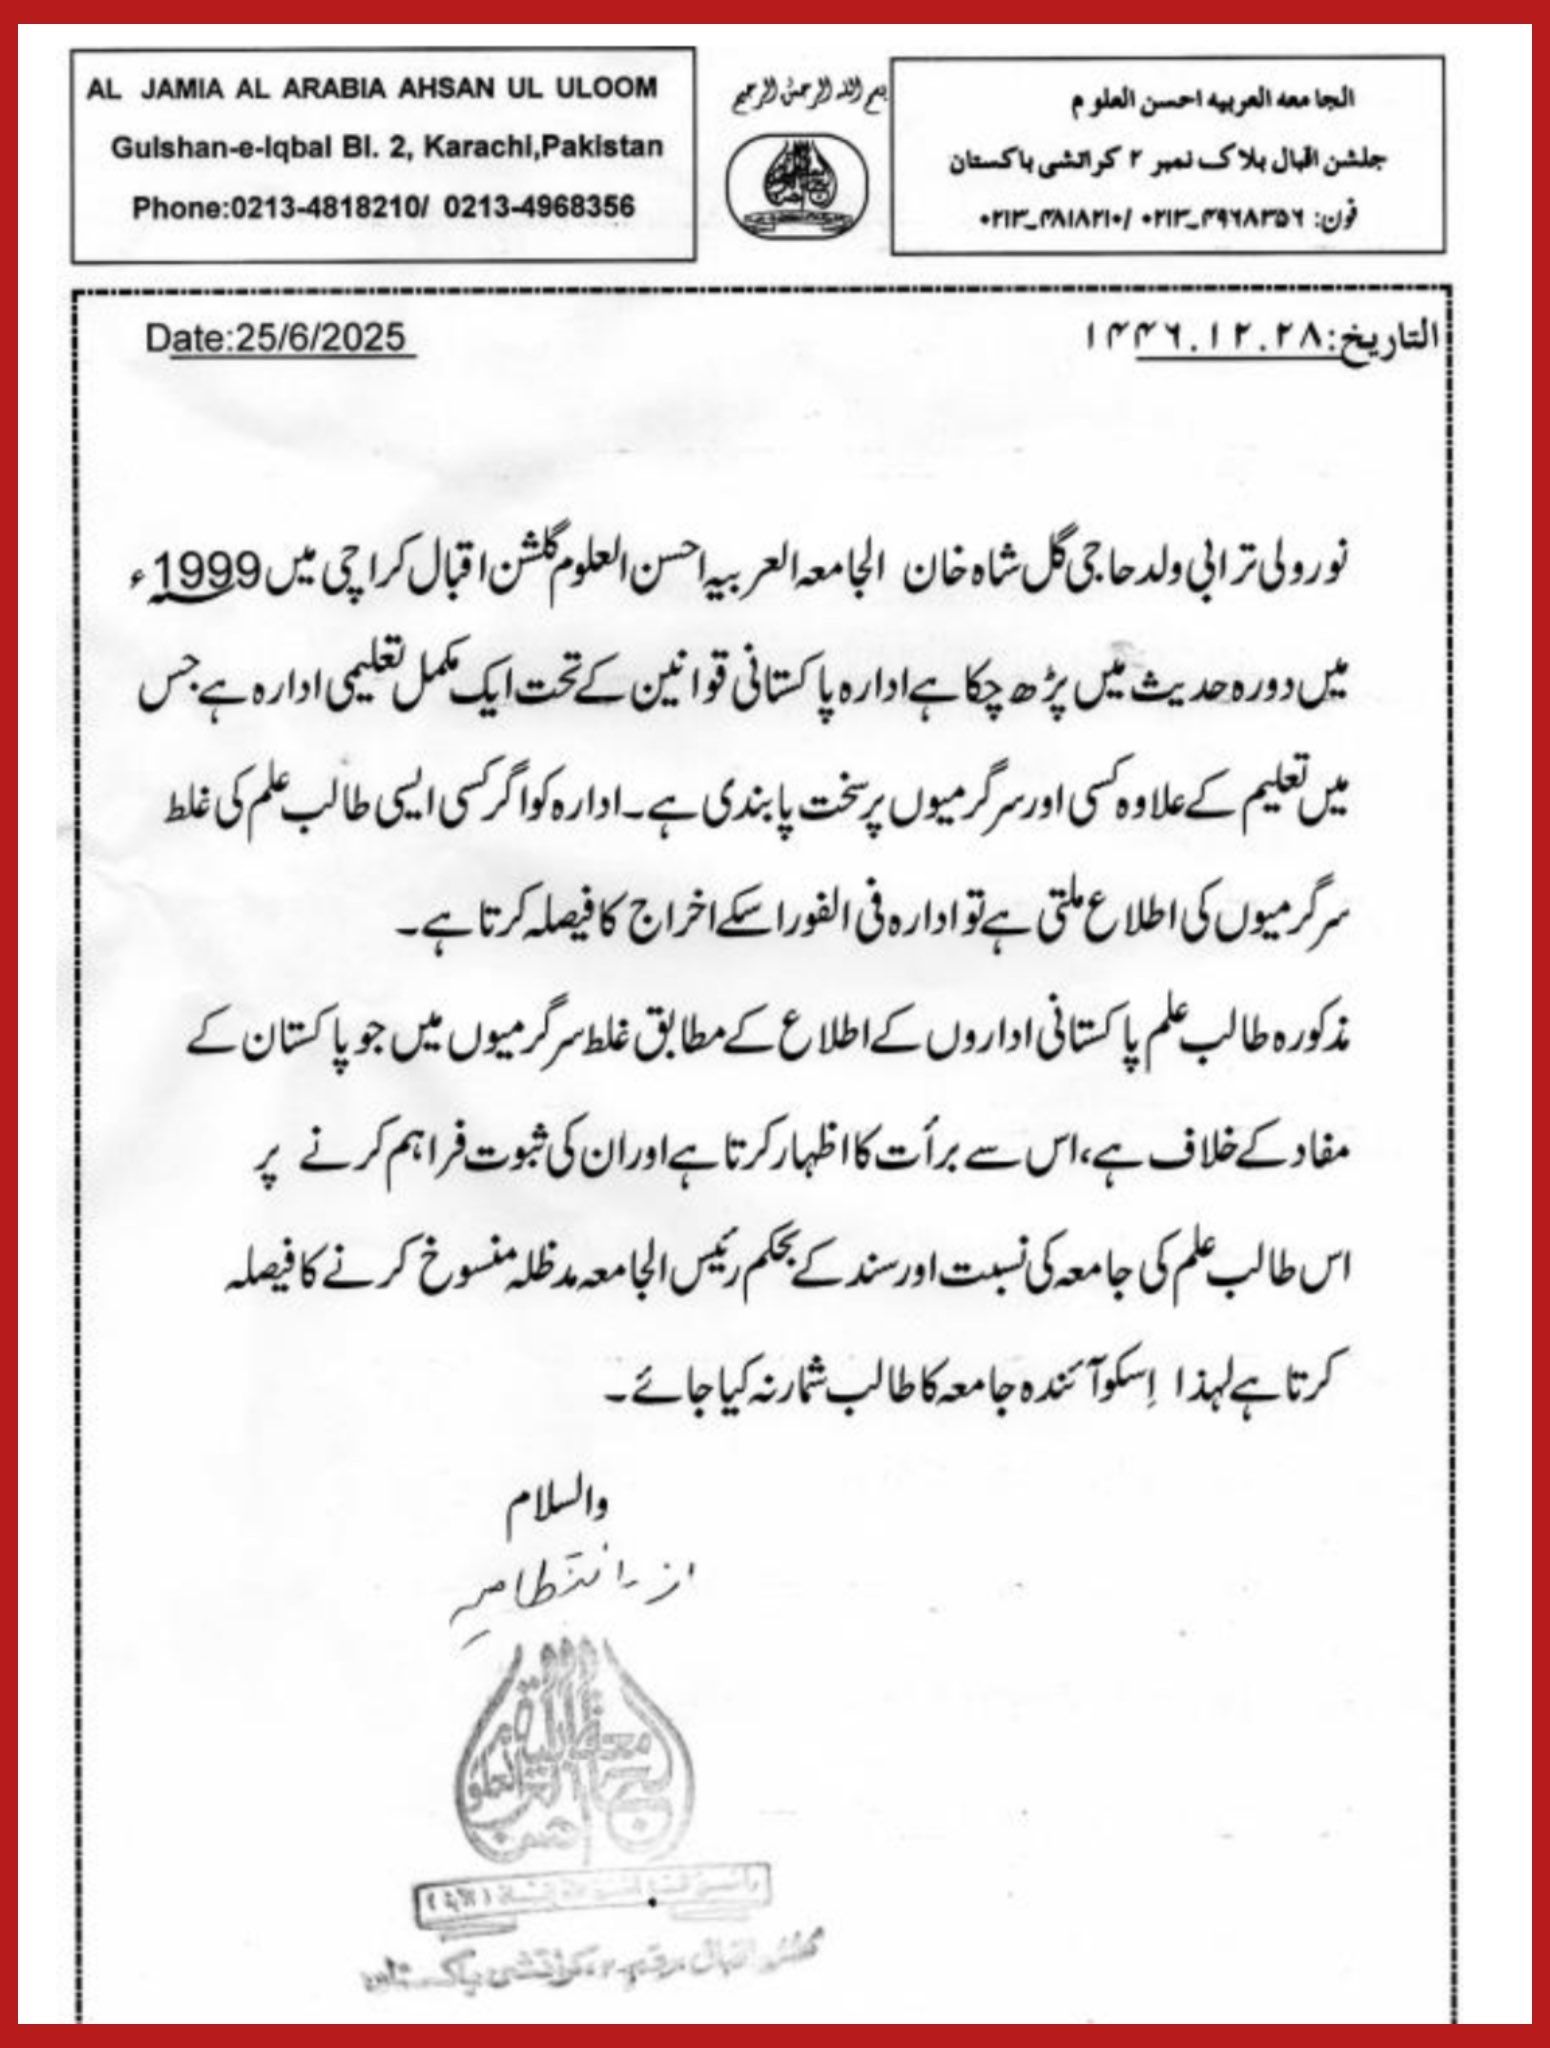 AL JAMIA AL ARABIA AHSAN UL ULOOM
Gulshan-e-Iqbal Bl. 2, Karachi,Pakistan
Phone:0213-4818210/ 0213-4968356
بسم الله الرحمن الرحيم
الجامعه العربيه احسن العلوم
جلشن اقبال بلاک نمبر ۲ کراتشی باکستان
فون: ۰۲۱۳_۴۹۶۸۳۵۶ /۰۲۱۳_۴۸۱۸۲۱۰
Date:25/6/2025
التاریخ:۱۴۴۶.۱۲.۲۸
نور ولی ترابی ولد حاجی گل شاہ خان الجامعہ العربیہ احسن العلوم گلشن اقبال کراچی میں 1999ء
میں دورہ حدیث میں پڑھ چکا ہے ادارہ پاکستانی قوانین کے تحت ایک مکمل تعلیمی ادارہ ہے جس
میں تعلیم کے علاوہ کسی اور سرگرمیوں پر سخت پابندی ہے۔ ادارہ کو اگر کسی ایسی طالب علم کی غلط
سرگرمیوں کی اطلاع ملتی ہے تو ادارہ فی الفور اسکے اخراج کا فیصلہ کرتا ہے۔
مذکورہ طالب علم پاکستانی اداروں کے اطلاع کے مطابق غلط سرگرمیوں میں جو پاکستان کے
مفاد کے خلاف ہے، اس سے برأت کا اظہار کرتا ہے اور ان کی ثبوت فراہم کرنے پر
اس طالب علم کی جامعہ کی نسبت اور سند کے بحکم رئیس الجامعہ مدظلہ منسوخ کرنے کا فیصلہ
کرتا ہے لہذا اِسکو آئندہ جامعہ کا طالب شمار نہ کیا جائے۔
والسلام
از انتظامیہ